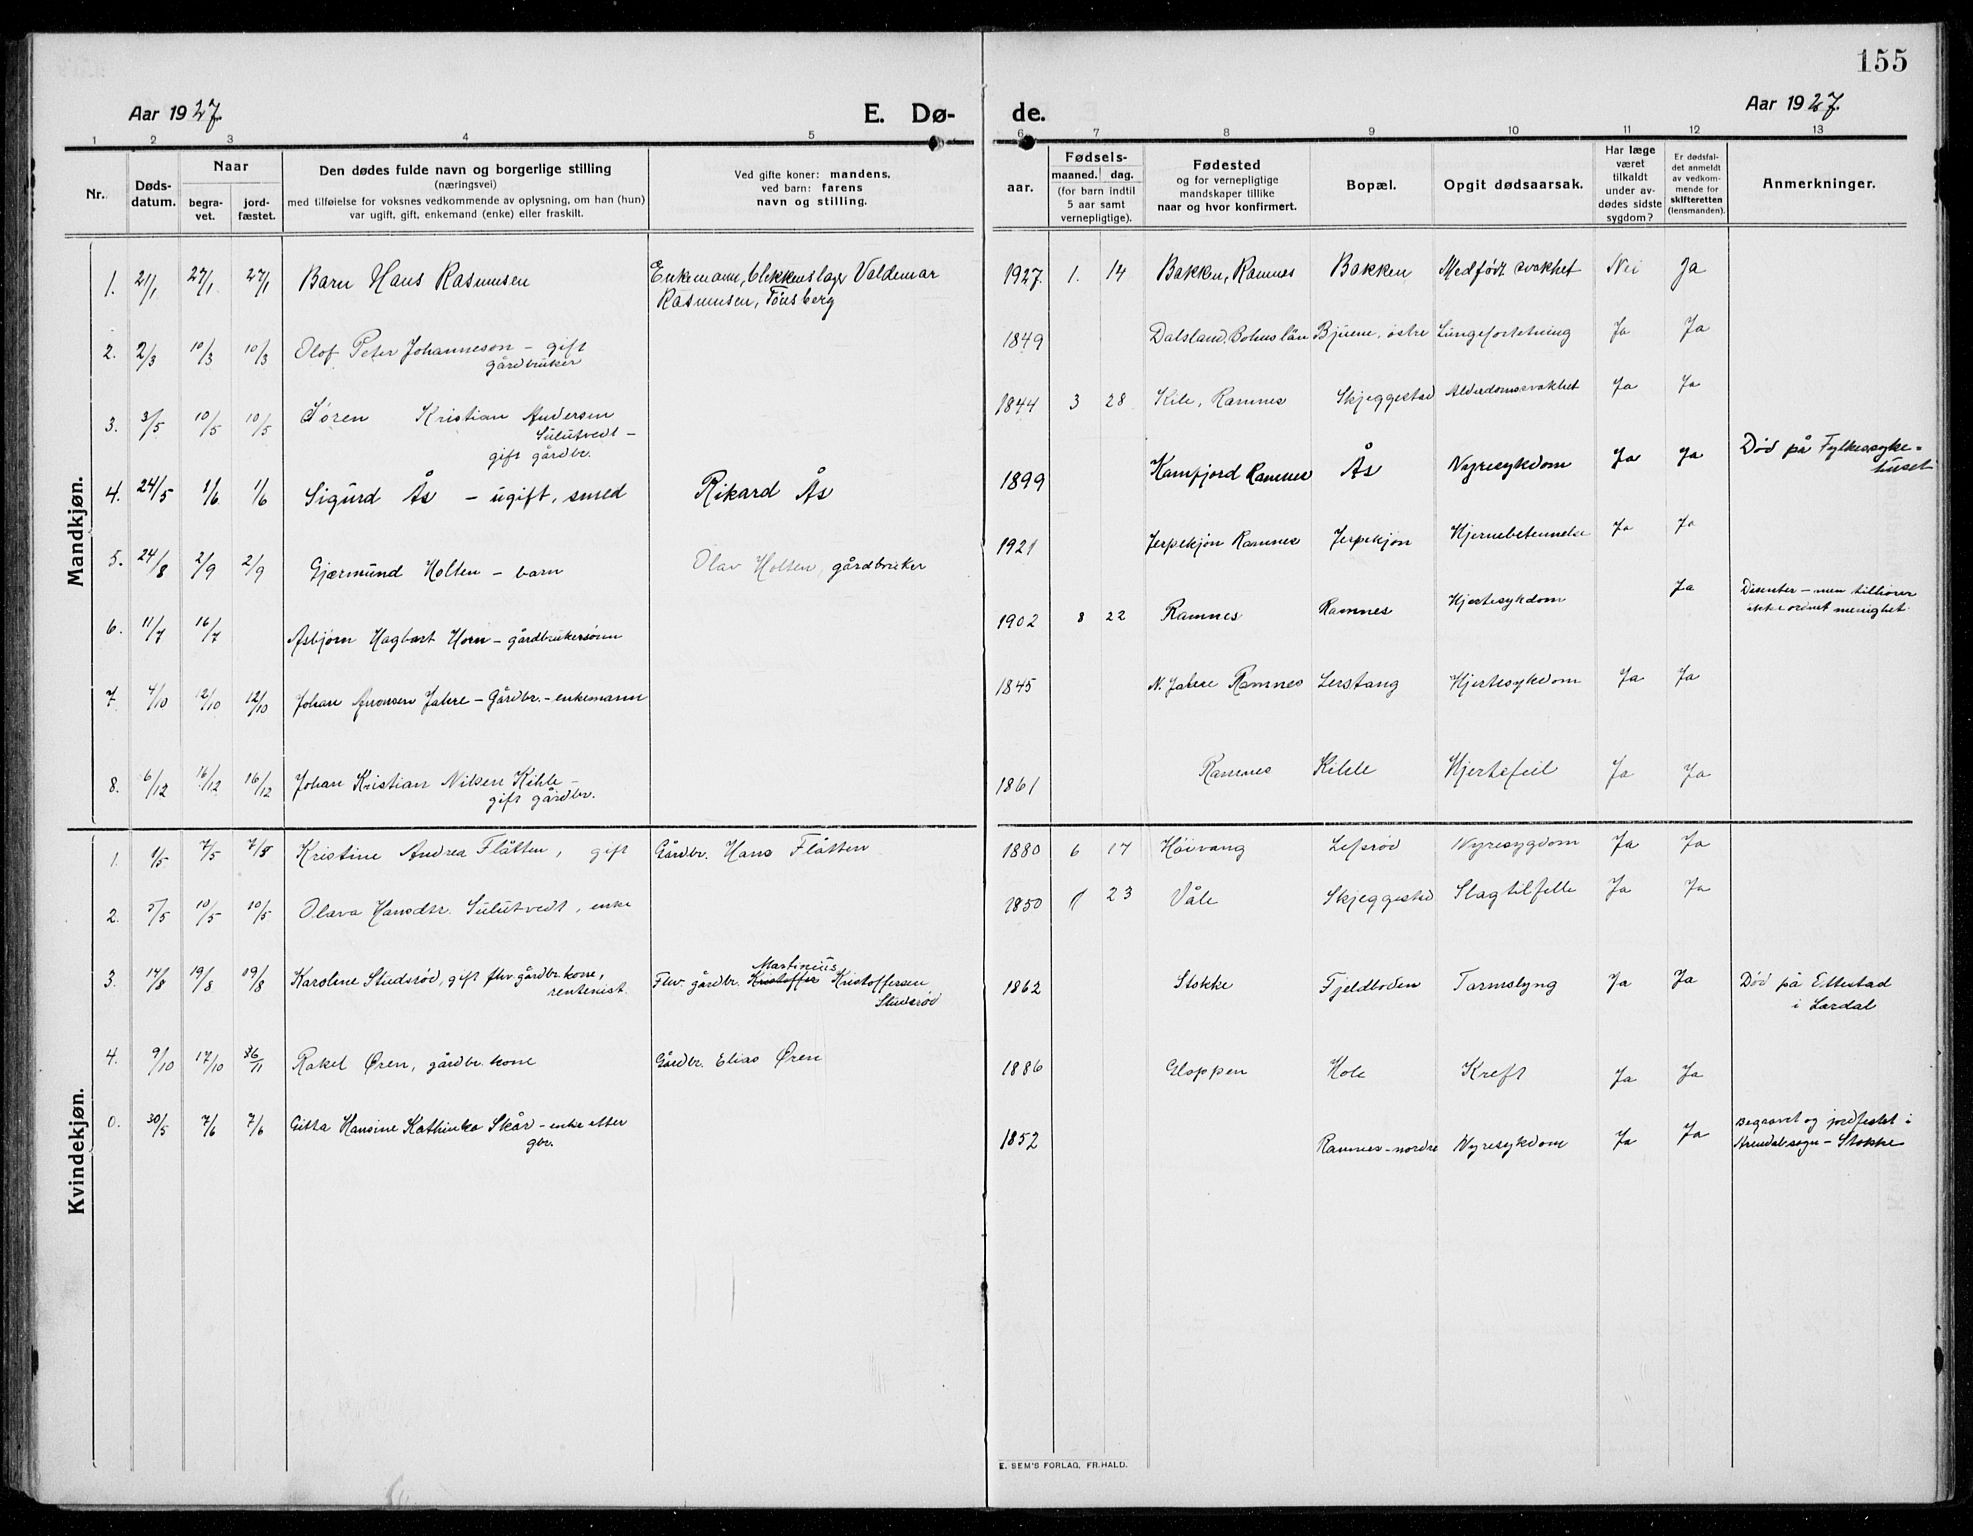 155
Aar 1927.
E. Dø-
de.
Aar 1927.
1 2 3 4 5 6 7 8 9 10 11 12 13
Nr.
Døds-
datum.
Naar
begra-
vet.
jord-
fæstet.
Den dødes fulde navn og borgerlige stilling
(næringsvei)
med tilføielse for voksnes vedkommende av oplysning, om han (hun)
var ugift, gift, enkemand (enke) eller fraskilt.
Ved gifte koner: mandens.
ved barn: farens
navn og stilling.
aar.
Fødsels-
maaned. dag.
(for barn indtil
5 aar samt
vernepligtige).
Fødested
og for vernepligtige
mandskaper tillike
naar og hvor konfirmert.
Bopæl.
Opgit dødsaarsak.
Har læge
været
tilkaldt
under av-
dødes sidste
sygdom?
Er dødsfal-
det anmeldt
av vedkom-
mende for
skifteretten
(lensmanden).
Anmerkninger.
Mandkjøn.
1. 21/1 27/1 27/1 Barn Hans Rasmusen Enkemann, blikkenslager Valdemar
Rasmusen, Tønsberg
1927. 1. 14 Bakken, Ramnes Bakken Medfødt svakhet Nei Ja
2. 2/3 10/3 10/3 Olof Peter Johanneson – gift
gårdbruker
1849 Dalsland, Bohuslän Bjuene, østre Lungefortetning Ja Ja
3. 3/5 10/5 10/5 Søren Kristian Andersen
Sulutvedt –
gift gårdbr.
1844 3 28 Kile, Ramnes Skjeggestad Alderdomssvakhet Ja Ja
4. 24/5 1/6 1/6 Sigurd Ås – ugift, smed Rikard Ås
1899 Kamfjord Ramnes Ås Nyresykdom Ja Ja Død på Fylkessyke-
huset
5. 24/8 2/9 2/9 Gjærmund Holten – barn Olav Holten, gårdbruker
1921 Jerpekjøn Ramnes Jerpekjøn Hjernebetennelse Ja Ja
6. 11/7 16/7 Asbjørn Hagbart Horn – gårdbrukersønn
1902 8 22 Ramnes Ramnes Hjertesykdom Ja Disenter – men tilhører
ikke ordnet menighet.
7 4/10 12/10 12/10 Johan Aronsen Jahre – Gårdbr. – enkemann
1845 N. Jahre Ramnes Lerstang Hjertesykdom Ja Ja
8. 6/12 16/12 16/12 Johan Kristian Nilsen Kihle –
gift gårdbr.
1861 Ramnes Kihle Hjertefeil Ja Ja
Kvindekjøn.
1. 1/5 7/5 7/5 Kristine Andrea Flåtten, gift Gårdbr. Hans Flåtten
1880 6 17 Høivang Lefsrød Nyresygdom Ja Ja
2. 5/5 10/5 10/5 Olava Hansdtr. Sulutvedt, enke
1850 23 Våle Skjeggestad Slagtilfelle Ja Ja
3. 14/8 19/8 19/8 Karoline Studsrød, gift fhv. gårdbr. kone,
rentenist.
Martinius
Fhv. gårdbr. Kristoffer Kristoffersen
Studsrød
1862 Stokke Fjeldboden Tarmslyng Ja Ja Død på Ettestad
i Lardal
4. 9/10 17/10 Rakel Øren, gårdbr. kone Gårdbr. Elias Øren
1886 Gloppen Hole Kreft Ja Ja
0. 30/5 7/6 7/6 Gitta Hansine Kathinka Skår – enke etter
gbr.
1852 Ramnes – nordre Nyresykdom Ja Ja Begravet og jordfestet i
Arendalsogn – Stokke
E. SEM'S FORLAG, FR.HALD.